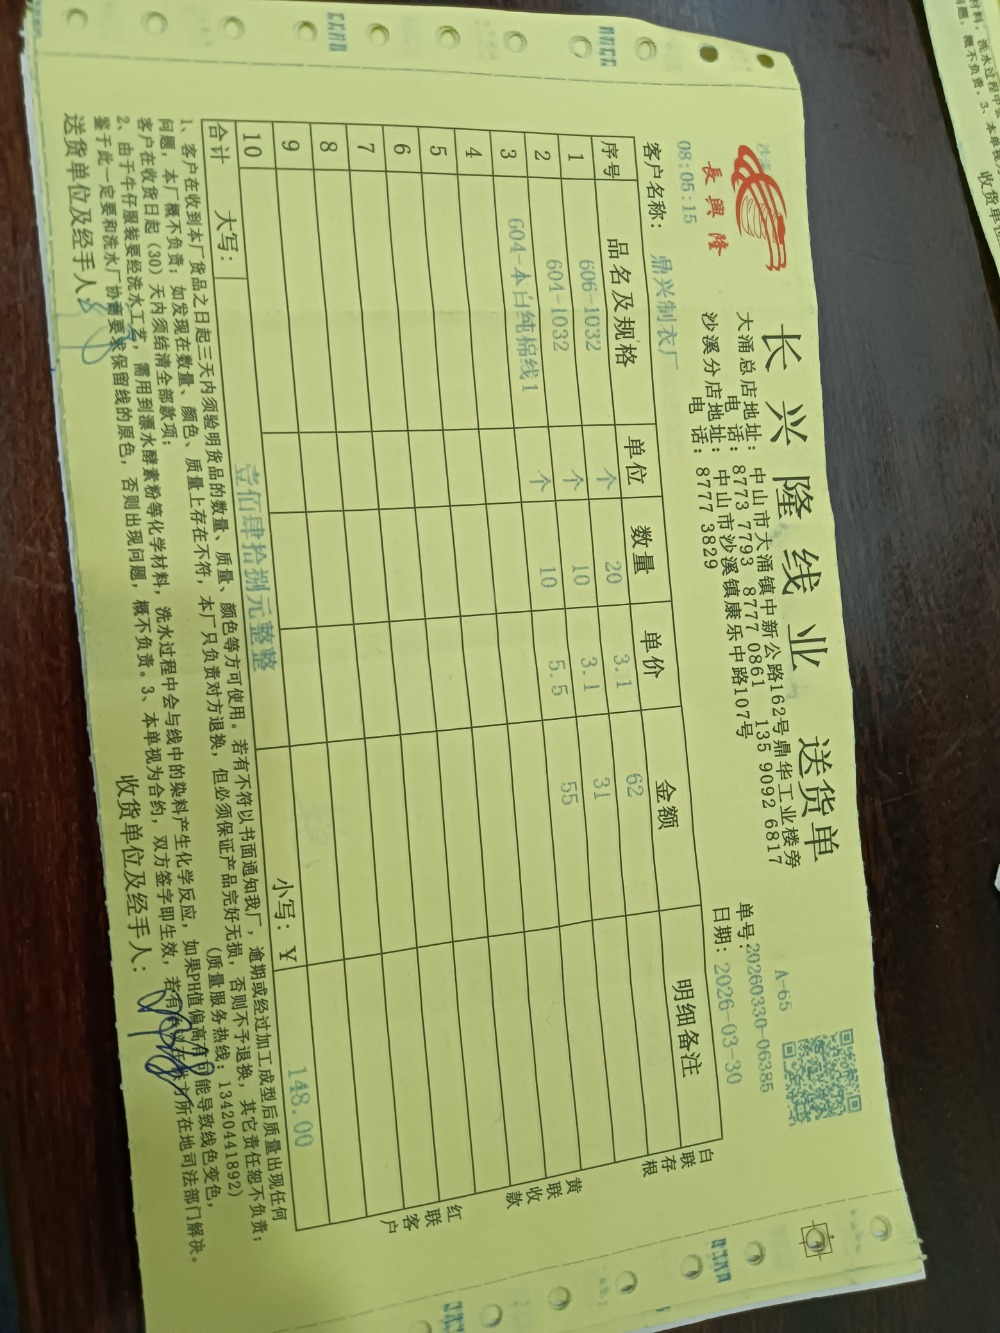 長興隆
长兴隆线业 送货单
大涌总店地址：中山市大涌镇中新公路162号鼎华工业楼旁
电话：8773 7793 8777 0861 135 9092 6817
沙溪分店地址：中山市沙溪镇康乐中路107号
电话：8777 3829
A-65
单号：20260330-06385
日期：2026-03-30
08:05:15
客户名称：鼎兴制衣厂
序号 品名及规格 单位 数量 单价 金额 明细备注
1 606-1032 个 20 3.1 62
2 604-1032 个 10 3.1 31
3 604-本白纯棉线1 个 10 5.5 55
4
5
6
7
8
9
10
合计 大写：壹佰肆拾捌元整整 小写：¥ 148.00
白联存根
黄联收款
红联客户
1、客户在收到本厂货品之日起三天内须验明货品的数量、质量、颜色等方可使用。若有不符以书面通知我厂，逾期或经过加工成型后质量出现任何
问题，本厂概不负责；如发现在数量、颜色、质量上存在不符，本厂只负责对方退换，但必须保证产品完好无损，否则不予退换，其它责任恕不负责；
客户在收货日起（30）天内须结清全部款项； （质量服务热线：13420441892）
2、由于牛仔服装要经洗水工艺，需用到漂水酵素粉等化学材料，洗水过程中会与线中的染料产生化学反应，如果PH值偏高有可能导致线色变色，
鉴于此一定要和洗水厂协商要求保留线的原色，否则出现问题，概不负责。3、本单视为合约，双方签字即生效，若有
方所在地司法部门解决。
送货单位及经手人：
收货单位及经手人：